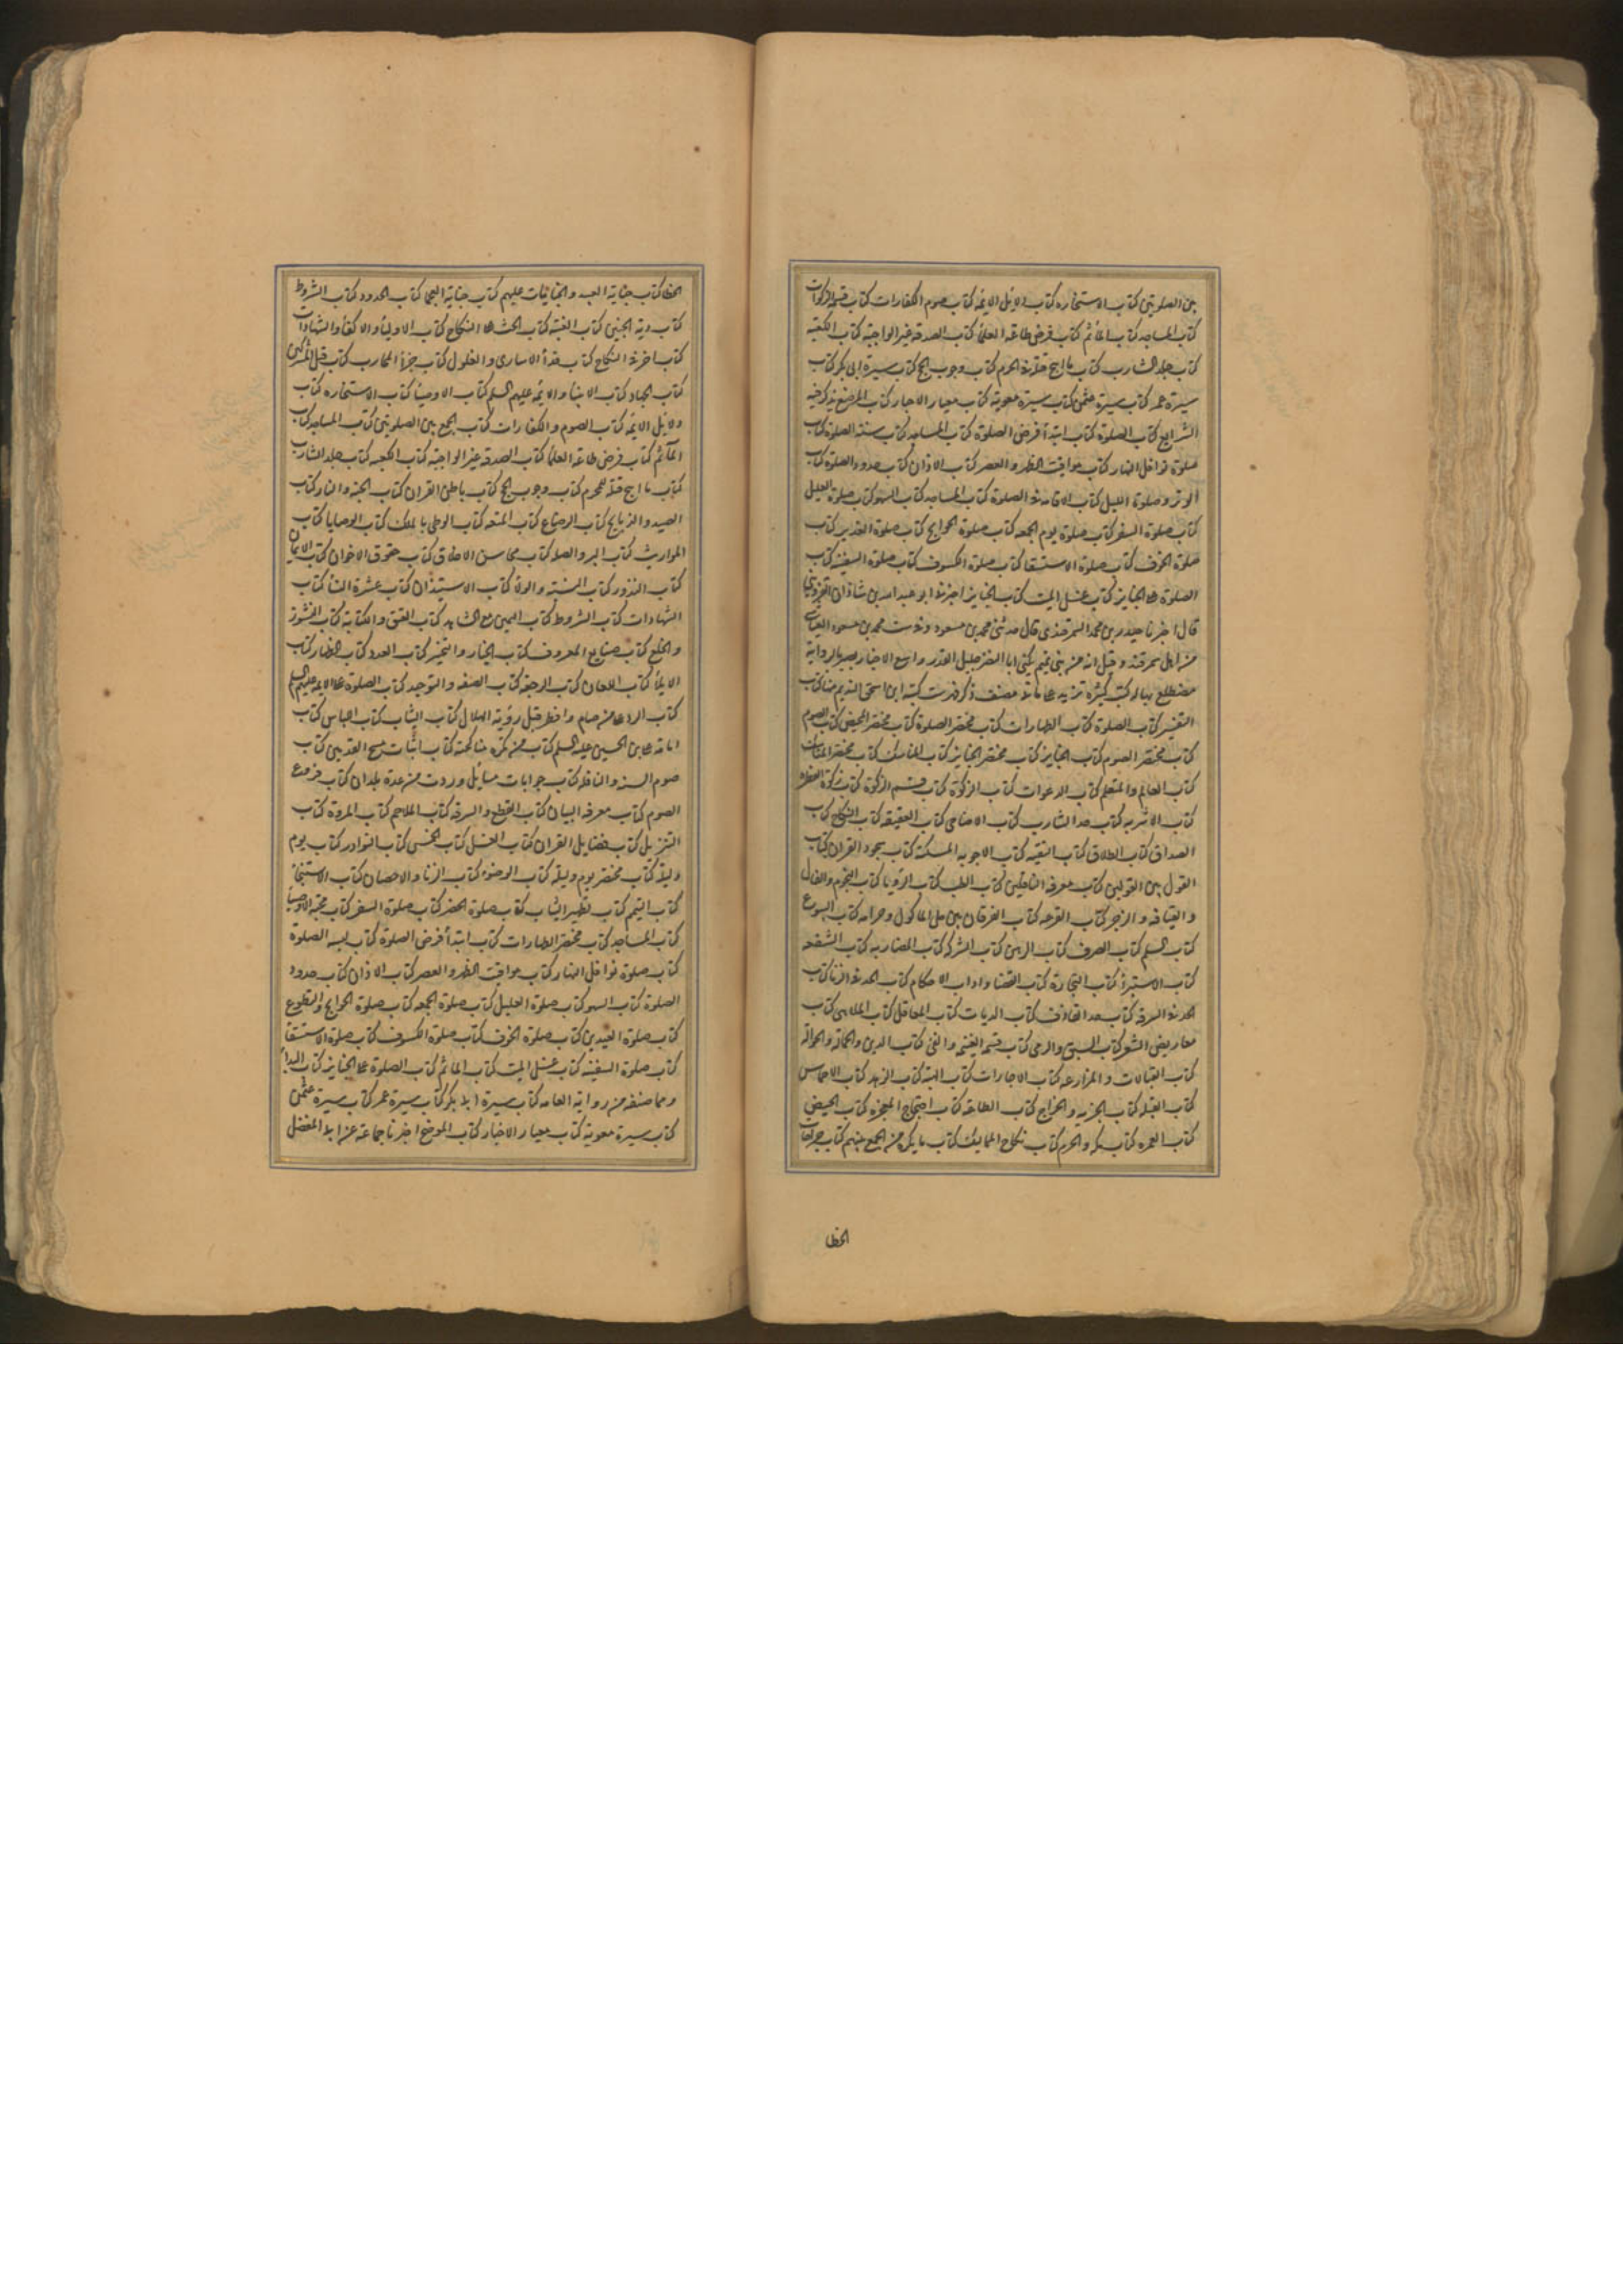 بين الصلوتين كتاب الاستخاره كتاب دلايل الايمه كتاب صوم الكفارات كتاب قسم الزكوات
كتاب المساجد كتاب المأثم كتاب فرض طاعه العلماء كتاب الصدقه غير الواجبه كتاب الكعبه
كتاب جلد الشارب كتاب ما ابيح قتله فى الحرم كتاب وجوب الحج كتاب سيرة ابى بكر كتاب
سيرة عمر كتاب سيرة عثمن كتاب سيرة معوية كتاب معيار الاخبار كتاب الموضع تذكر فيه
الشرايع كتاب الصلوة كتاب ابتدأ فرض الصلوة كتاب المساجد كتاب سنته الصلوة كتاب
صلوة نوافل النهار كتاب مواقيت الظهر والعصر كتاب الاذان كتاب حدود الصلوة كتاب
الوتر وصلوة الليل كتاب الاقامه فى الصلوة كتاب المساجد كتاب السهو كتاب صلوة العليل
كتاب صلوة السفر كتاب صلوة يوم الجمعه كتاب صلوة الحوايج كتاب صلوة الغدير كتاب
صلوة الخوف كتاب صلوة الاستسقا كتاب صلوة الكسوف كتاب صلوة السفينه كتاب
الصلوة على الجنايز كتاب غسل الميت كتاب الجنايز اخبرنى ابو عبد الله بن شاذان القزوينى
قال اخبرنا حيدر بن محمد السمرقندى قال حدثنى محمد بن مسعود محمد بن مسعود العياشى
من اهل سمرقند وقيل انه من بنى تميم يكنى ابا النضر جليل القدر واسع الاخبار بصير بالرواية
مضطلع بها له كتب كثيره تزيد على ماتى مصنف ذكر فهرست كتبه ابن اسحق النديم منها كتاب
التفسير كتاب الصلوة كتاب الطهارات كتاب مختصر الصلوة كتاب مختصر الحيض كتاب الصوم
كتاب مختصر الصوم كتاب الجنايز كتاب مختصر الجنايز كتاب المناسك كتاب مختصر المناسك
كتاب العالم والمتعلم كتاب الدعوات كتاب الزكوة كتاب قسم الزكوة كتاب زكوة الفطره
كتاب الاشربه كتاب حد الشارب كتاب الاضاحى كتاب العقيقه كتاب النكاح كتاب
الصداق كتاب الطلاق كتاب التقيه كتاب الاجوبه المسكته كتاب سجود القران كتاب
القول بين القولين كتاب معرفه الناقلين كتاب الطب كتاب الرؤيا كتاب النجوم والفال
والقيافه والزجر كتاب القرعه كتاب الفرقان بين حل الماكول وحرامه كتاب البيوع
كتاب السلم كتاب الصرف كتاب الرهن كتاب الشرك كتاب المضاربه كتاب الشفعه
كتاب الاستبرأ كتاب التجارة كتاب القضا واداب الاحكام كتاب الحد فى الزنا كتاب
الحد فى السرقه كتاب حد القاذف كتاب الديات كتاب المعاقل كتاب الملاهى كتاب
معاريض الشعر كتاب السبق والرمى كتاب قسم الغنيمه والفئ كتاب الدين والحماله والحواله
كتاب القبالات والمزارعه كتاب الاجارات كتاب الهبه كتاب الزهد كتاب الاحباس
كتاب القبله كتاب الجزيه والخراج كتاب الطاعه كتاب احتجاج المعجزه كتاب الحيض
كتاب العمره كتاب مكه والحرم كتاب نكاح المماليك كتاب ما يكره من الجمع بينهم كتاب
الخطا
الخطا كتاب جناية العبد والجنايات عليهم كتاب جناية العجما كتاب الحدود كتاب الشروط
كتاب دية الجنين كتاب الغيبه كتاب الحث على النكاح كتاب الاوليأ والاكفأ والشهادات
كتاب اخر فى النكاح كتاب فدأ الاسارى والغلول كتاب جزأ المحارب كتاب قتل المشركين
كتاب الجهاد كتاب الانبيأ والايمه عليهم السلم كتاب الاوصيأ كتاب الاستخاره كتاب
دلايل الايمه كتاب الصوم والكفارات كتاب الجمع بين الصلوتين كتاب المساجد كتاب
المآثم كتاب فرض طاعه العلمأ كتاب الصدقه غير الواجبه كتاب الكعبه كتاب جلد الشارب
كتاب ما ابيح قتله للمحرم كتاب وجوب الحج كتاب باطن القران كتاب الجنه والنار كتاب
الصيد والذبايح كتاب الرضاع كتاب المتعه كتاب الوطى بالملك كتاب الوصايا كتاب
المواريث كتاب البر والصله كتاب محاسن الاخلاق كتاب حقوق الاخوان كتاب الايمان
كتاب النذور كتاب النسبة والولاء كتاب الاستيذان كتاب عشرة النسأ كتاب
الشهادات كتاب الشروط كتاب اليمين مع الشاهد كتاب العتق والكتابة كتاب النشوز
والخلع كتاب صنايع المعروف كتاب الخيار والتخيير كتاب العدد كتاب الظهار كتاب
الايلأ كتاب اللعان كتاب الرجعه كتاب الصفه والتوحيد كتاب الصلوة على الايمه عليهم السلم
كتاب الرد على من صام وافطر قبل رؤية الهلال كتاب الثياب كتاب اللباس كتاب
امامة على بن الحسين عليه السلم كتاب من تكره مناكحته كتاب اثبات مسح القدمين كتاب
صوم السنه والنافله كتاب جوابات مسايل وردت من عدة بلدان كتاب فروع
الصوم كتاب معرفه البيان كتاب القطع والسرقه كتاب الملاحم كتاب المروة كتاب
التنزيل كتاب فضايل القران كتاب الغسل كتاب الخمس كتاب النوادر كتاب يوم
وليلة كتاب مختصر يوم وليلة كتاب الوضوء كتاب الزنا والاحصان كتاب الاستنجأ
كتاب التيمم كتاب تطهير الثياب كتاب صلوة الحضر كتاب صلوة السفر كتاب محبه الاوصيأ
كتاب المساجد كتاب مختصر الطهارات كتاب ابتدأ فرض الصلوة كتاب لبسه الصلوة
كتاب صلوة نوافل النهار كتاب مواقيت الظهر والعصر كتاب الاذان كتاب حدود
الصلوة كتاب السهو كتاب صلوة العليل كتاب صلوة الجمعه كتاب صلوة الحوايج والتطوع
كتاب صلوة العيدين كتاب صلوة الخوف كتاب صلوة الكسوف كتاب صلوة الاستسقا
كتاب صلوة السفينه كتاب غسل الميت كتاب الماثم كتاب الصلوة على الجنايز كتاب البدأ
ومما صنفه من رواية العامه كتاب سيرة ابى بكر كتاب سيرة عمر كتاب سيرة عثمن
كتاب سيرة معوية كتاب معيار الاخبار كتاب الموضح اخبرنا جماعة عن ابى المفضل